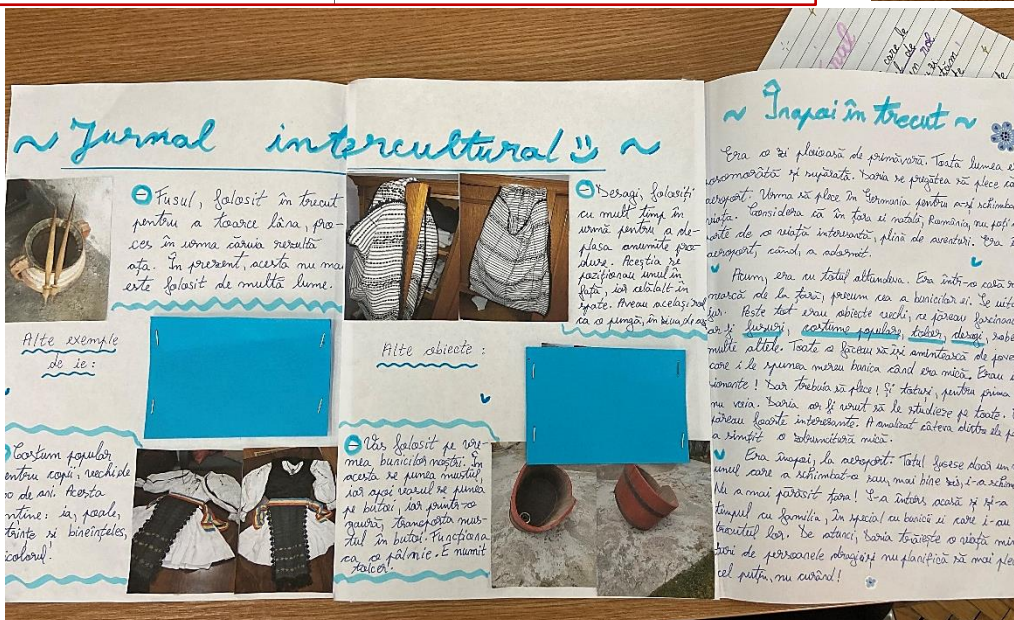 ~ Jurnal intercultural ~
Fusul, folosit în trecut
pentru a toarce lâna, pro-
ces în urma căruia rezultă
ața. În prezent, acesta nu mai
este folosit de multă lume.
Alte exemple
de ie:
Costum popular
entru copii, vechi de
o de ani. Acesta
nține: ia, poale,
trințe și bineînțeles,
icolorul!
Desagi, folosiți
cu mult timp în
urmă pentru a de-
plasa anumite pro-
duse. Aceștia se
poziționau unul în
față, iar celălalt în
spate. Aveau același rol
ca o pungă, în ziua de az
Alte obiecte:
Vas folosit pe vre-
mea bunicilor noștri. În
acesta se punea mustul,
iar apoi vasul se punea
pe butoi, iar printr-o
gaură, transporta mus-
tul în butoi. Funcționa
ca o pâlnie. E numit
talcer.
~ Înapoi în trecut ~
Era o zi ploioasă de primăvară. Toată lumea e
posomorâtă și supărată. Daria se pregătea să plece că
aeroport. Urma să plece în Germania pentru a-și schimba
viața. Considera că în țara ei natală, România, nu poți
arte de o viață interesantă, plină de aventuri. Era î
aeroport, când, a adormit.
Acum, era cu totul altundeva. Era într-o casă
mască de la țară, precum cea a bunicilor ei. Se uita
jur. Peste tot erau obiecte vechi, ce păreau fascinan
ar și fusuri, costume populare, talcer, desagi,
multe altele. Toate o făceau să își amintească de pove
care i le spunea mereu bunica când era mică. Erau
ionante! Dar trebuia să plece! Și totuși, pentru prima
nu voia. Daria ar fi vrut să le studieze pe toate.
păreau foarte interesante. A analizat câteva dintre ele
a simțit o zdruncitură mică.
Era înapoi, la aeroport. Totul fusese doar un
unul care a schimbat-o sau, mai bine zis, i-a schim
Nu a mai părăsit țara! S-a întors acasă și și-a
timpul cu familia, în special cu bunicii ei care i-au
trecutul lor. De atunci, Daria trăiește o viață min
turi de persoanele dragi și nu planifică să mai ple
cel puțin, nu curând!
care le